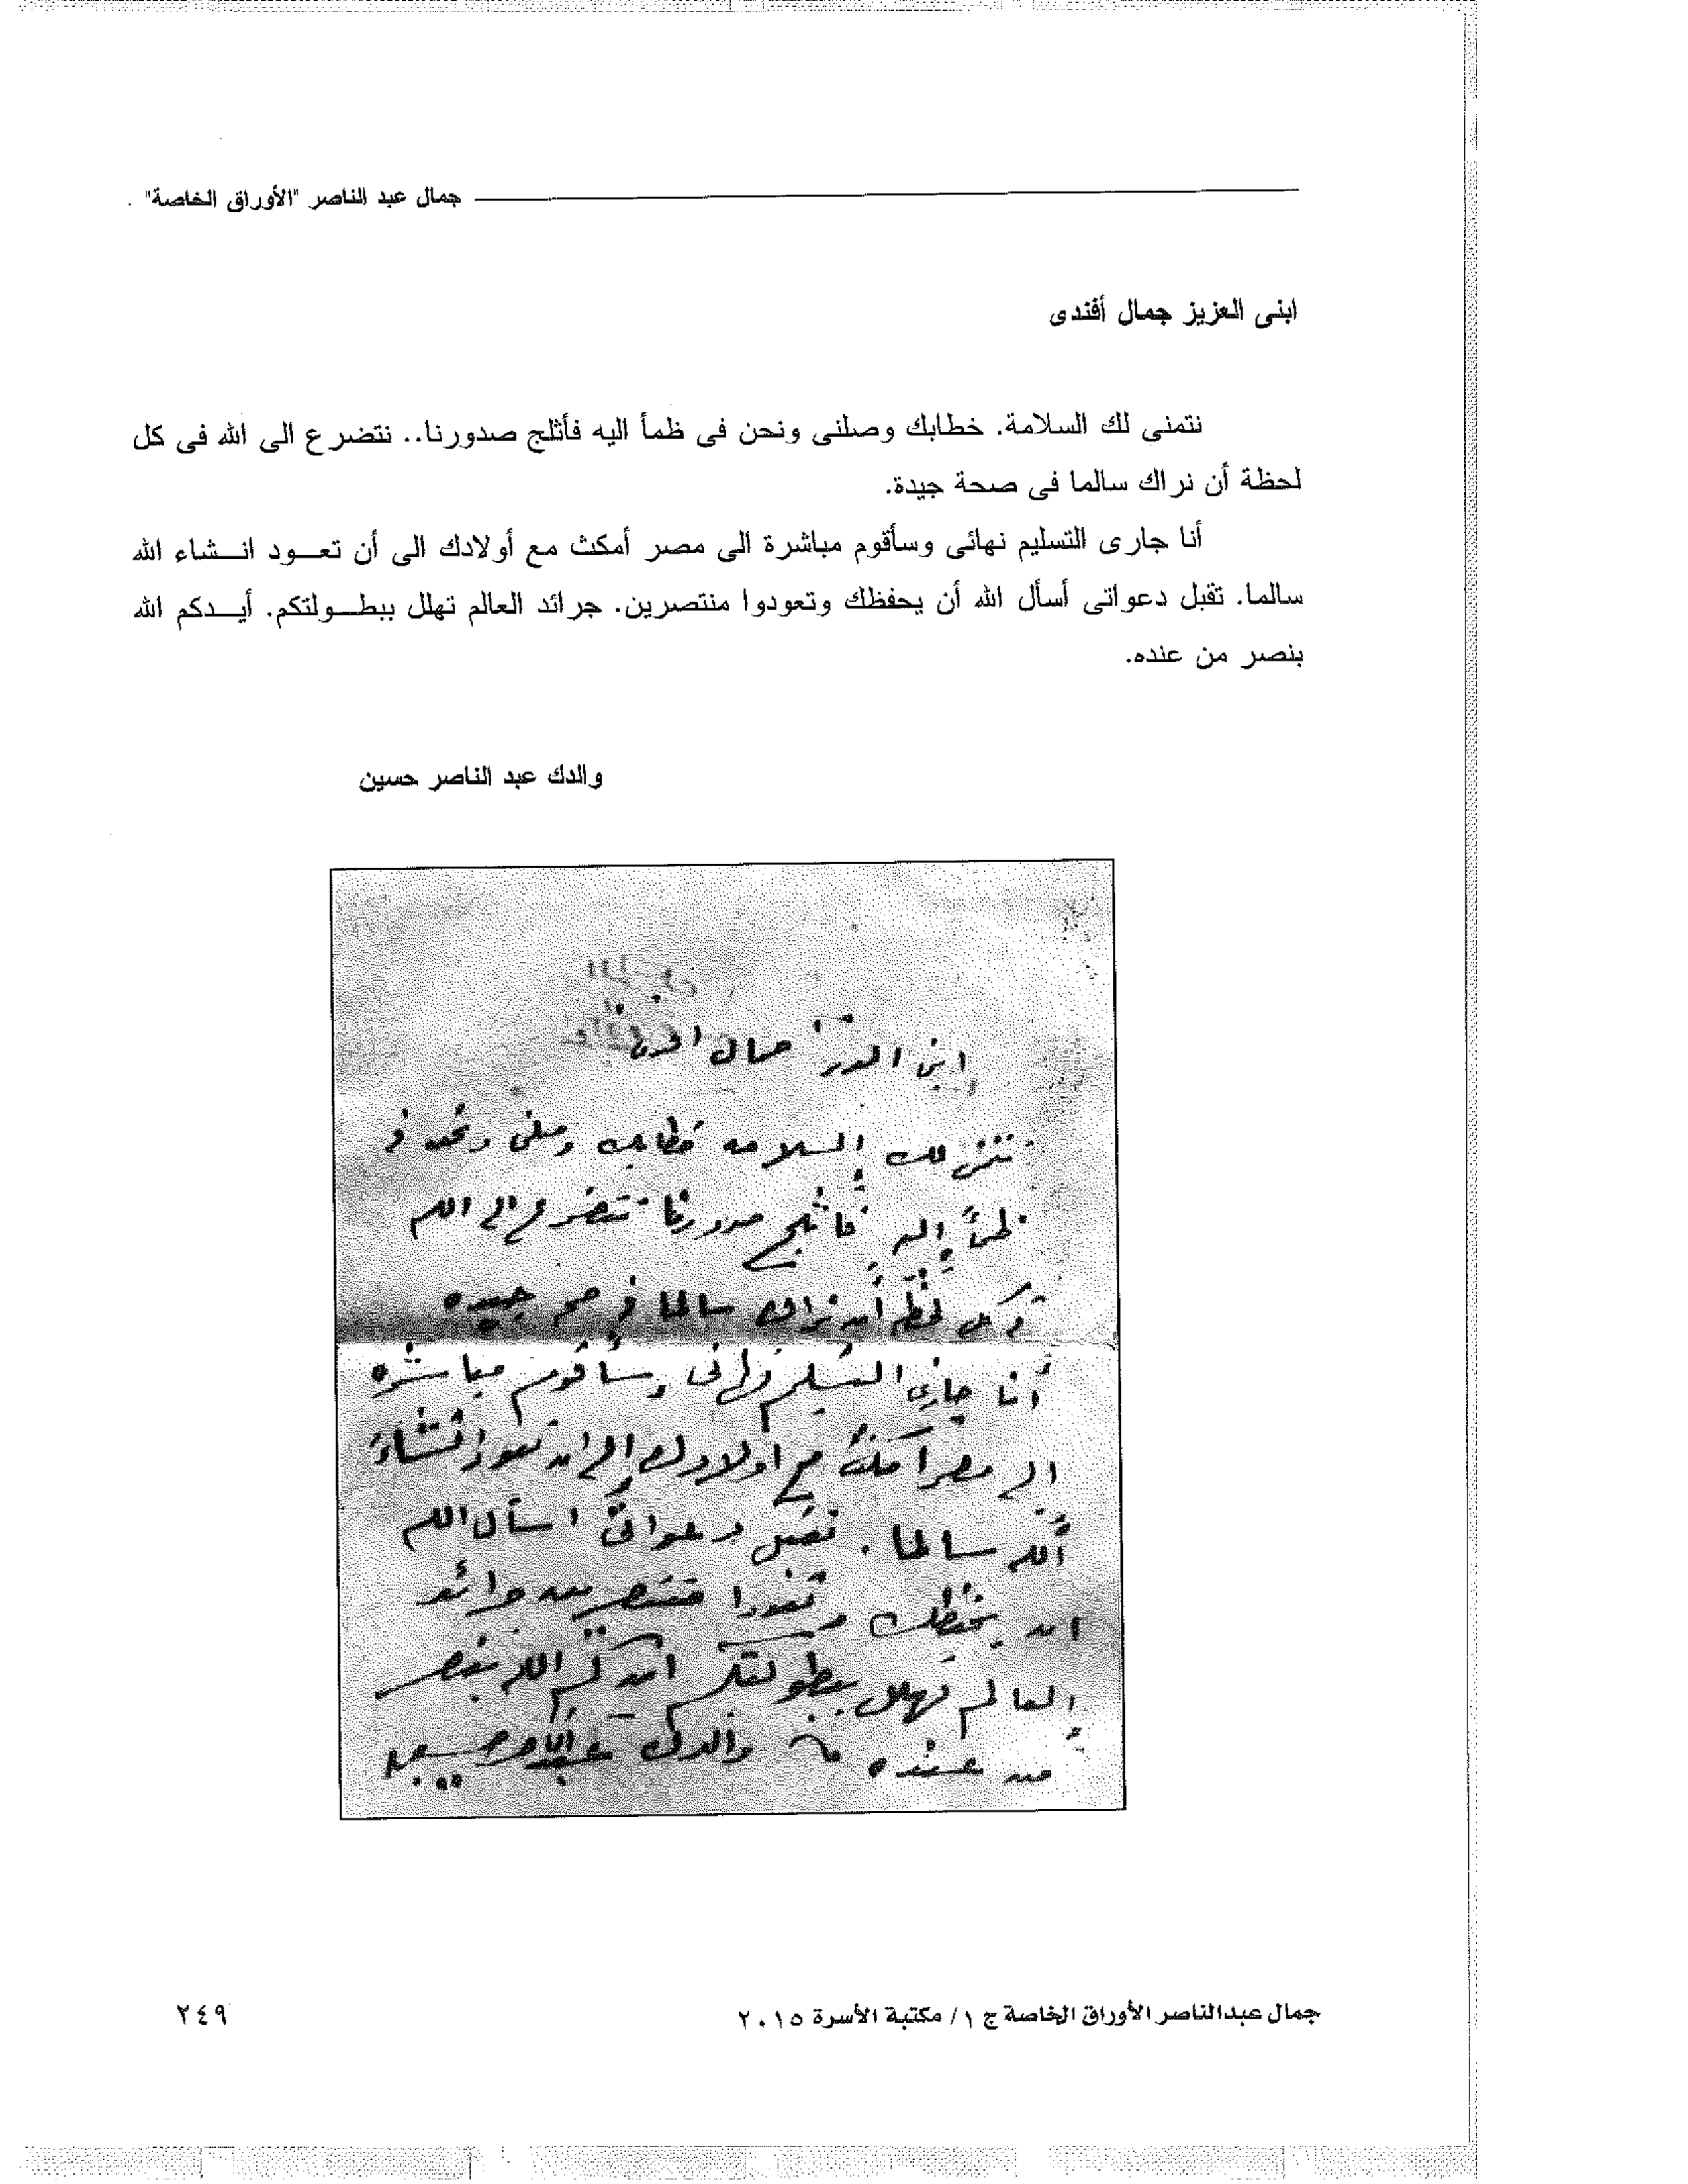 جمال عبد الناصر "الأوراق الخاصة"
ابنى العزيز جمال أفندى
نتمنى لك السلامة. خطابك وصلنى ونحن فى ظمأ اليه فأثلج صدورنا.. نتضرع الى الله فى كل
لحظة أن نراك سالما فى صحة جيدة.
أنا جارى التسليم نهائى وسأقوم مباشرة الى مصر أمكث مع أولادك الى أن تعـــود انـــشاء الله
سالما. تقبل دعواتى أسأل الله أن يحفظك وتعودوا منتصرين. جرائد العالم تهلل ببطـــولتكم. أيـــدكم الله
بنصر من عنده.
والدك عبد الناصر حسين
ابنى العزيز جمال افندى
نتمنى لك السلامه خطابك وصلنى ونحن فى
ظمأ إليه فأثلج صدورنا نتضرع الى الله
فى كل لحظه أن نراك سالما فى صحه جيده
أنا جارى التسليم نهائى وسأقوم مباشره
الى مصر أمكث مع اولادك إلى ان تعود انشاء
الله سالما. تقبل دعواتى اسأل الله
ان يحفظك وتعودوا منتصرين جرائد
العالم تهلل ببطولتكم ايدكم الله بنصر
من عنده والدك عبد الناصر حسين
جمال عبدالناصر الأوراق الخاصة ج ١/ مكتبة الأسرة ٢٠١٥
٢٤٩